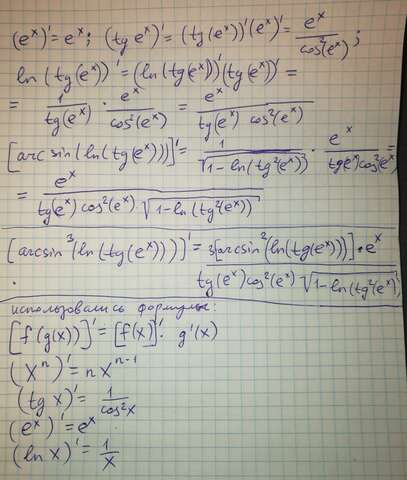 (e^x)' = e^x; (tg e^x)' = (tg(e^x))'(e^x)' = e^x / cos²(e^x);
ln(tg(e^x))' = (ln(tg(e^x)))'(tg(e^x))' =
= 1 / tg(e^x) · e^x / cos²(e^x) = e^x / (tg(e^x) cos²(e^x))
[arcsin(ln(tg(e^x)))]' = 1 / √(1-ln(tg²(e^x))) · e^x / (tg(e^x)cos²(e^x)) =
= e^x / (tg(e^x) cos²(e^x) √(1-ln(tg²(e^x))))
[arcsin³(ln(tg(e^x)))]' = 3[arcsin²(ln(tg(e^x)))]·e^x / (tg(e^x)cos²(e^x) √(1-ln(tg²(e^x))))
использовались формулы:
[f(g(x))]' = [f(x)]' · g'(x)
(x^n)' = nx^(n-1)
(tg x)' = 1 / cos²x
(e^x)' = e^x
(ln x)' = 1 / x